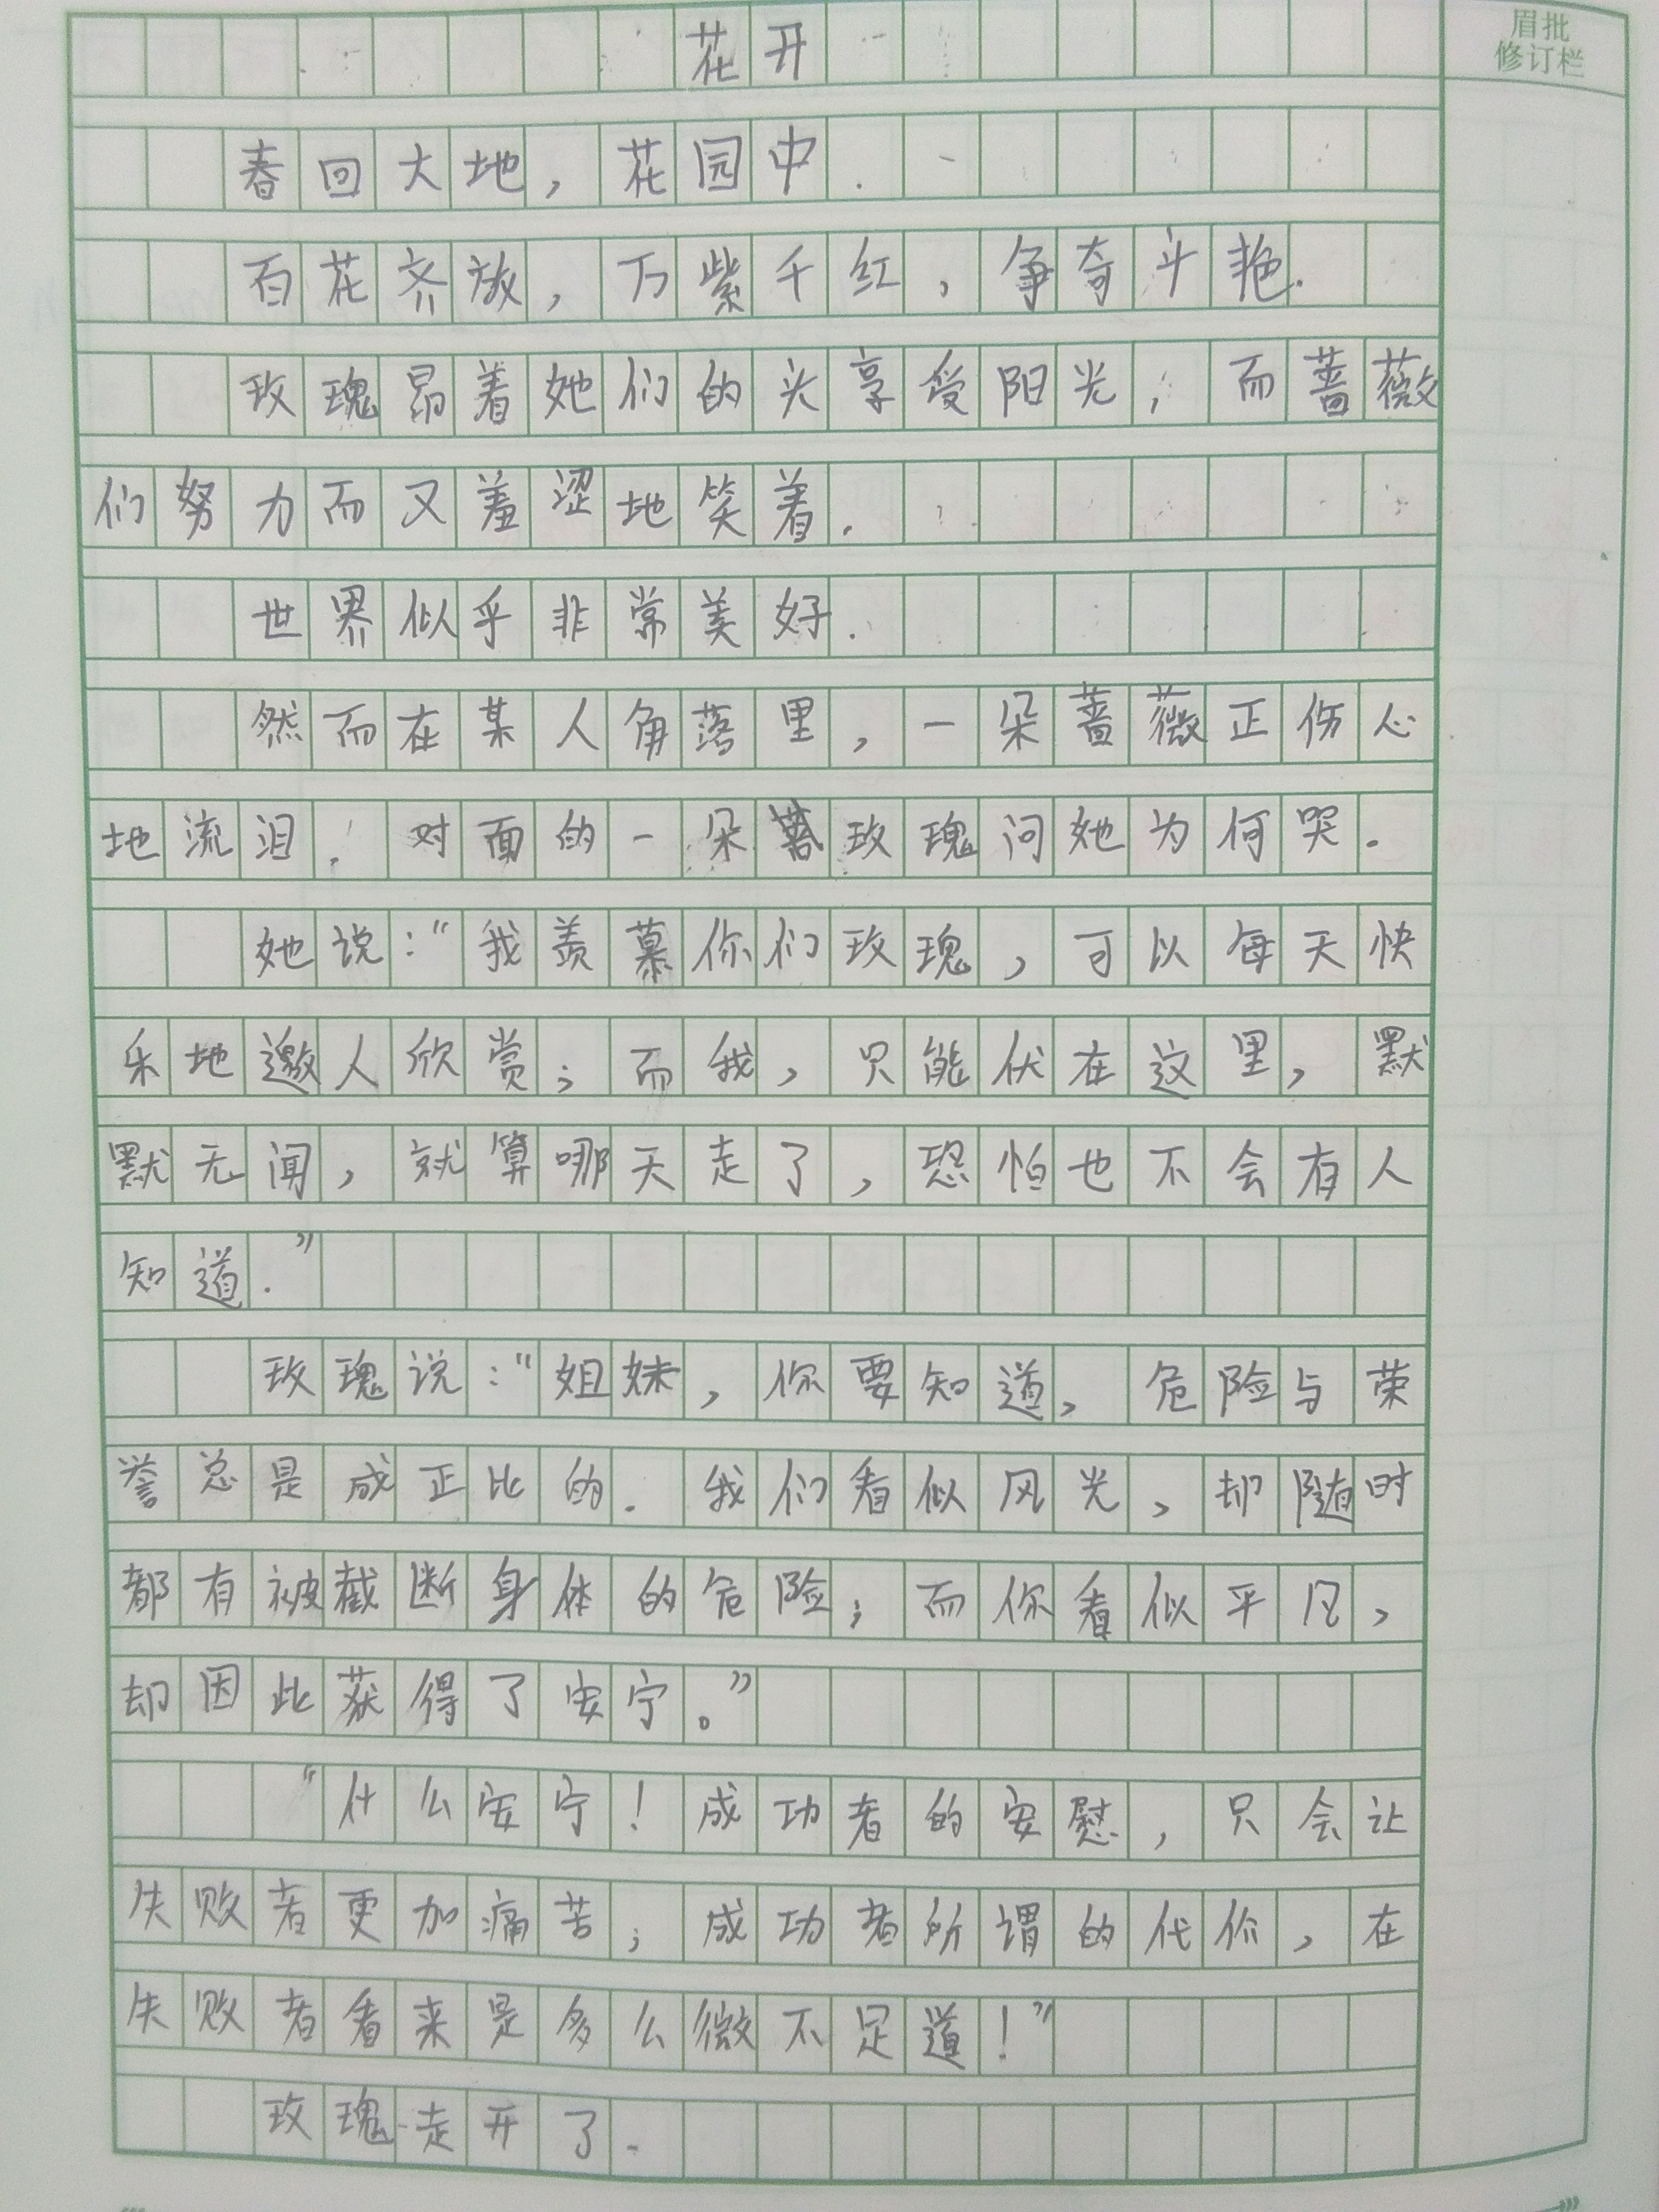 花开
眉批
修订栏
春回大地，花园中．
百花齐放，万紫千红，争奇斗艳．
玫瑰昂着她们的头享受阳光，而蔷薇
们努力而又羞涩地笑着．
世界似乎非常美好．
然而在某人角落里，一朵蔷薇正伤心
地流泪．对面的一朵玫瑰问她为何哭．
她说：“我羡慕你们玫瑰，可以每天快
乐地邀人欣赏；而我，只能伏在这里，默
默无闻，就算哪天走了，恐怕也不会有人
知道．”
玫瑰说：“姐妹，你要知道，危险与荣
誉总是成正比的．我们看似风光，却随时
都有被截断身体的危险；而你看似平凡，
却因此获得了安宁。”
“什么安宁！成功者的安慰，只会让
失败者更加痛苦；成功者所谓的代价，在
失败者看来是多么微不足道！”
玫瑰走开了．